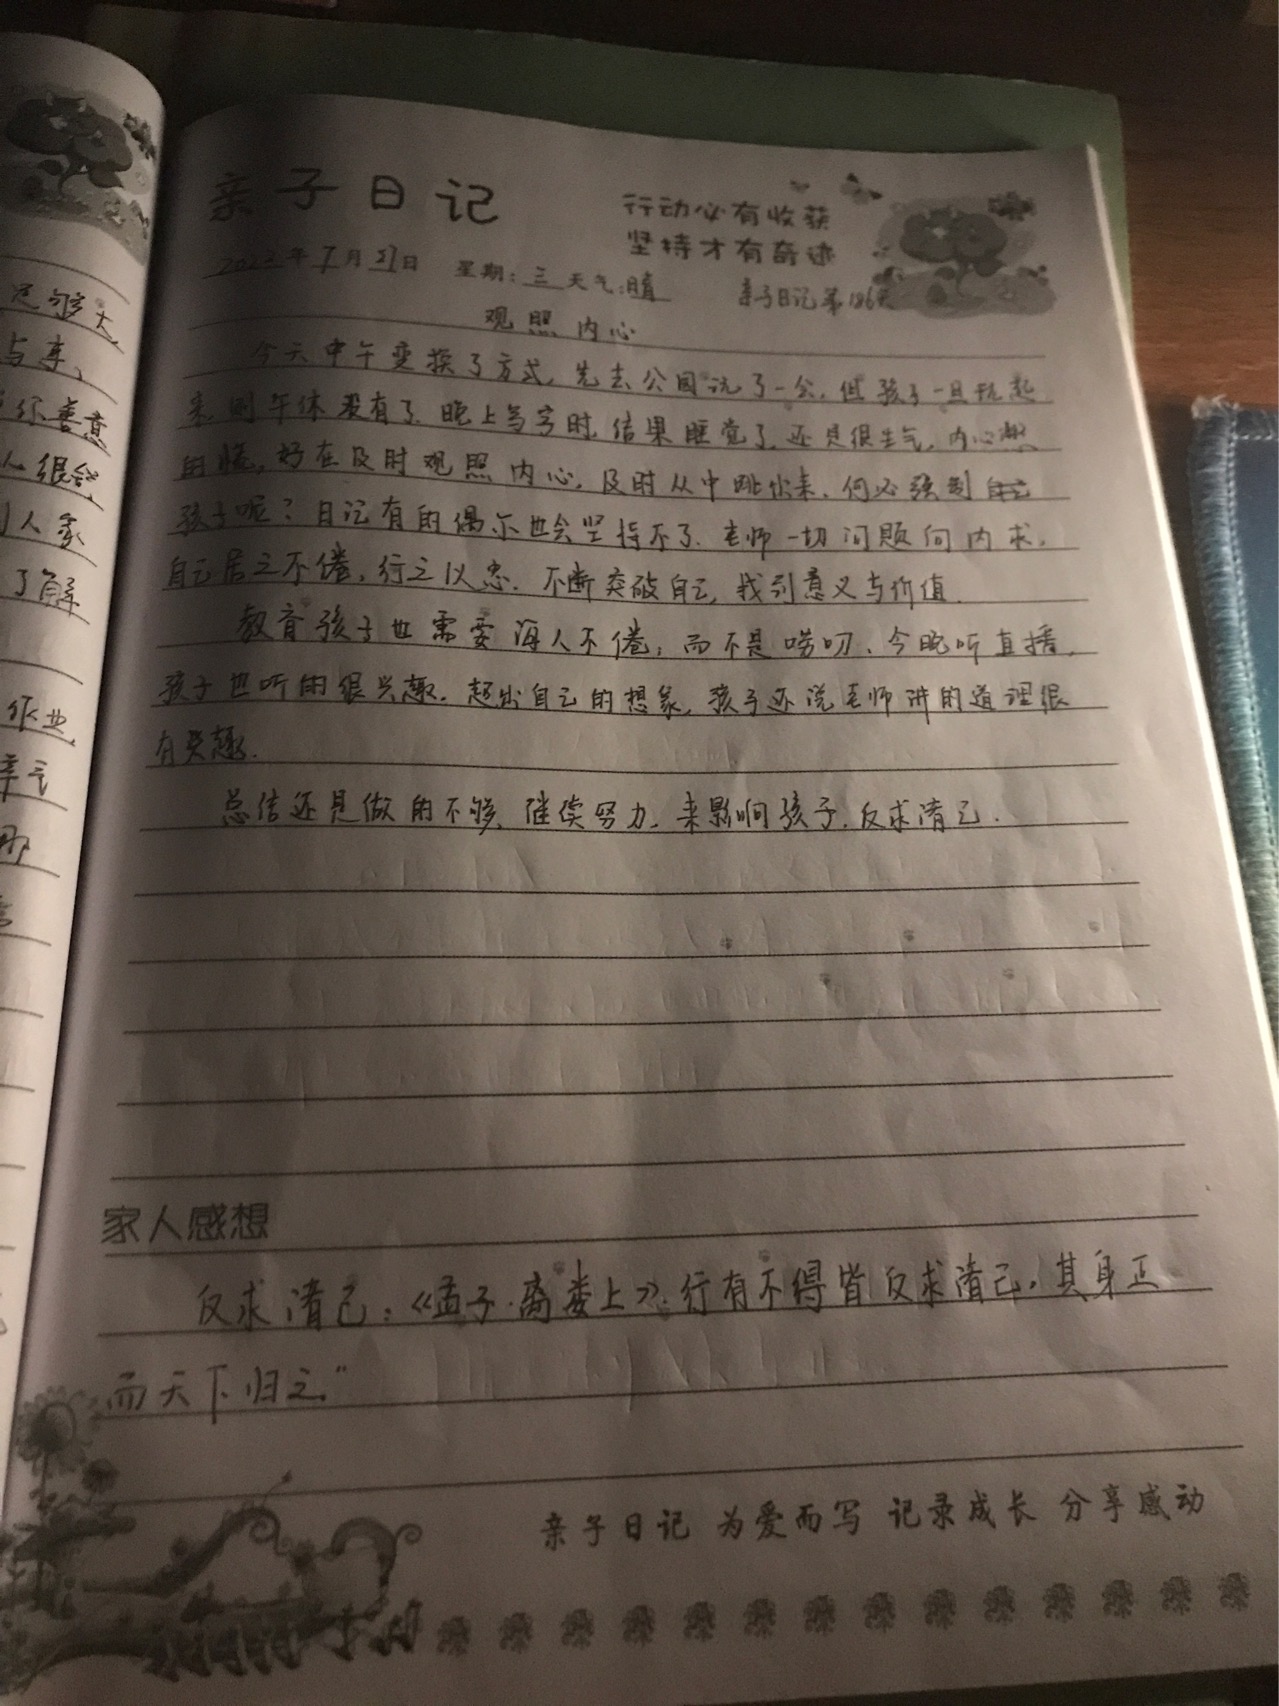 足够大
与来,
你善意
人很
人家
了解
作业,
亲子日记
行动必有收获
坚持才有奇迹
年 月 日 星期:三 天气:晴 亲子日记第186天
观照内心
今天中午变换了方式,先去公园玩了一会,但孩子一旦玩起
来,则午休没有了.晚上写字时,结果睡觉了,还是很生气,内心燃
的 ,好在及时观照内心,及时从中跳出来.何必强制
孩子呢?日记有的偶尔也会坚持不了.老师一切问题向内求,
自己居之不倦,行之以忠.不断突破自己,找到意义与价值.
教育孩子也需要诲人不倦,而不是唠叨、今晚听直播,
孩子也听的很兴趣.超出自己的想象,孩子还说老师讲的道理很
有兴趣.
总结还是做的不够,继续努力.来影响孩子.反求诸己.
家人感想
反求诸己:《孟子·离娄上》:行有不得皆反求诸己,其身正
而天下归之."
亲子日记 为爱而写 记录成长 分享感动